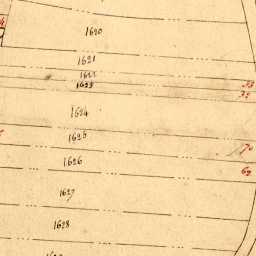 1620
1621
1622
1623
1624
1625
1626
1627
1628
70
69